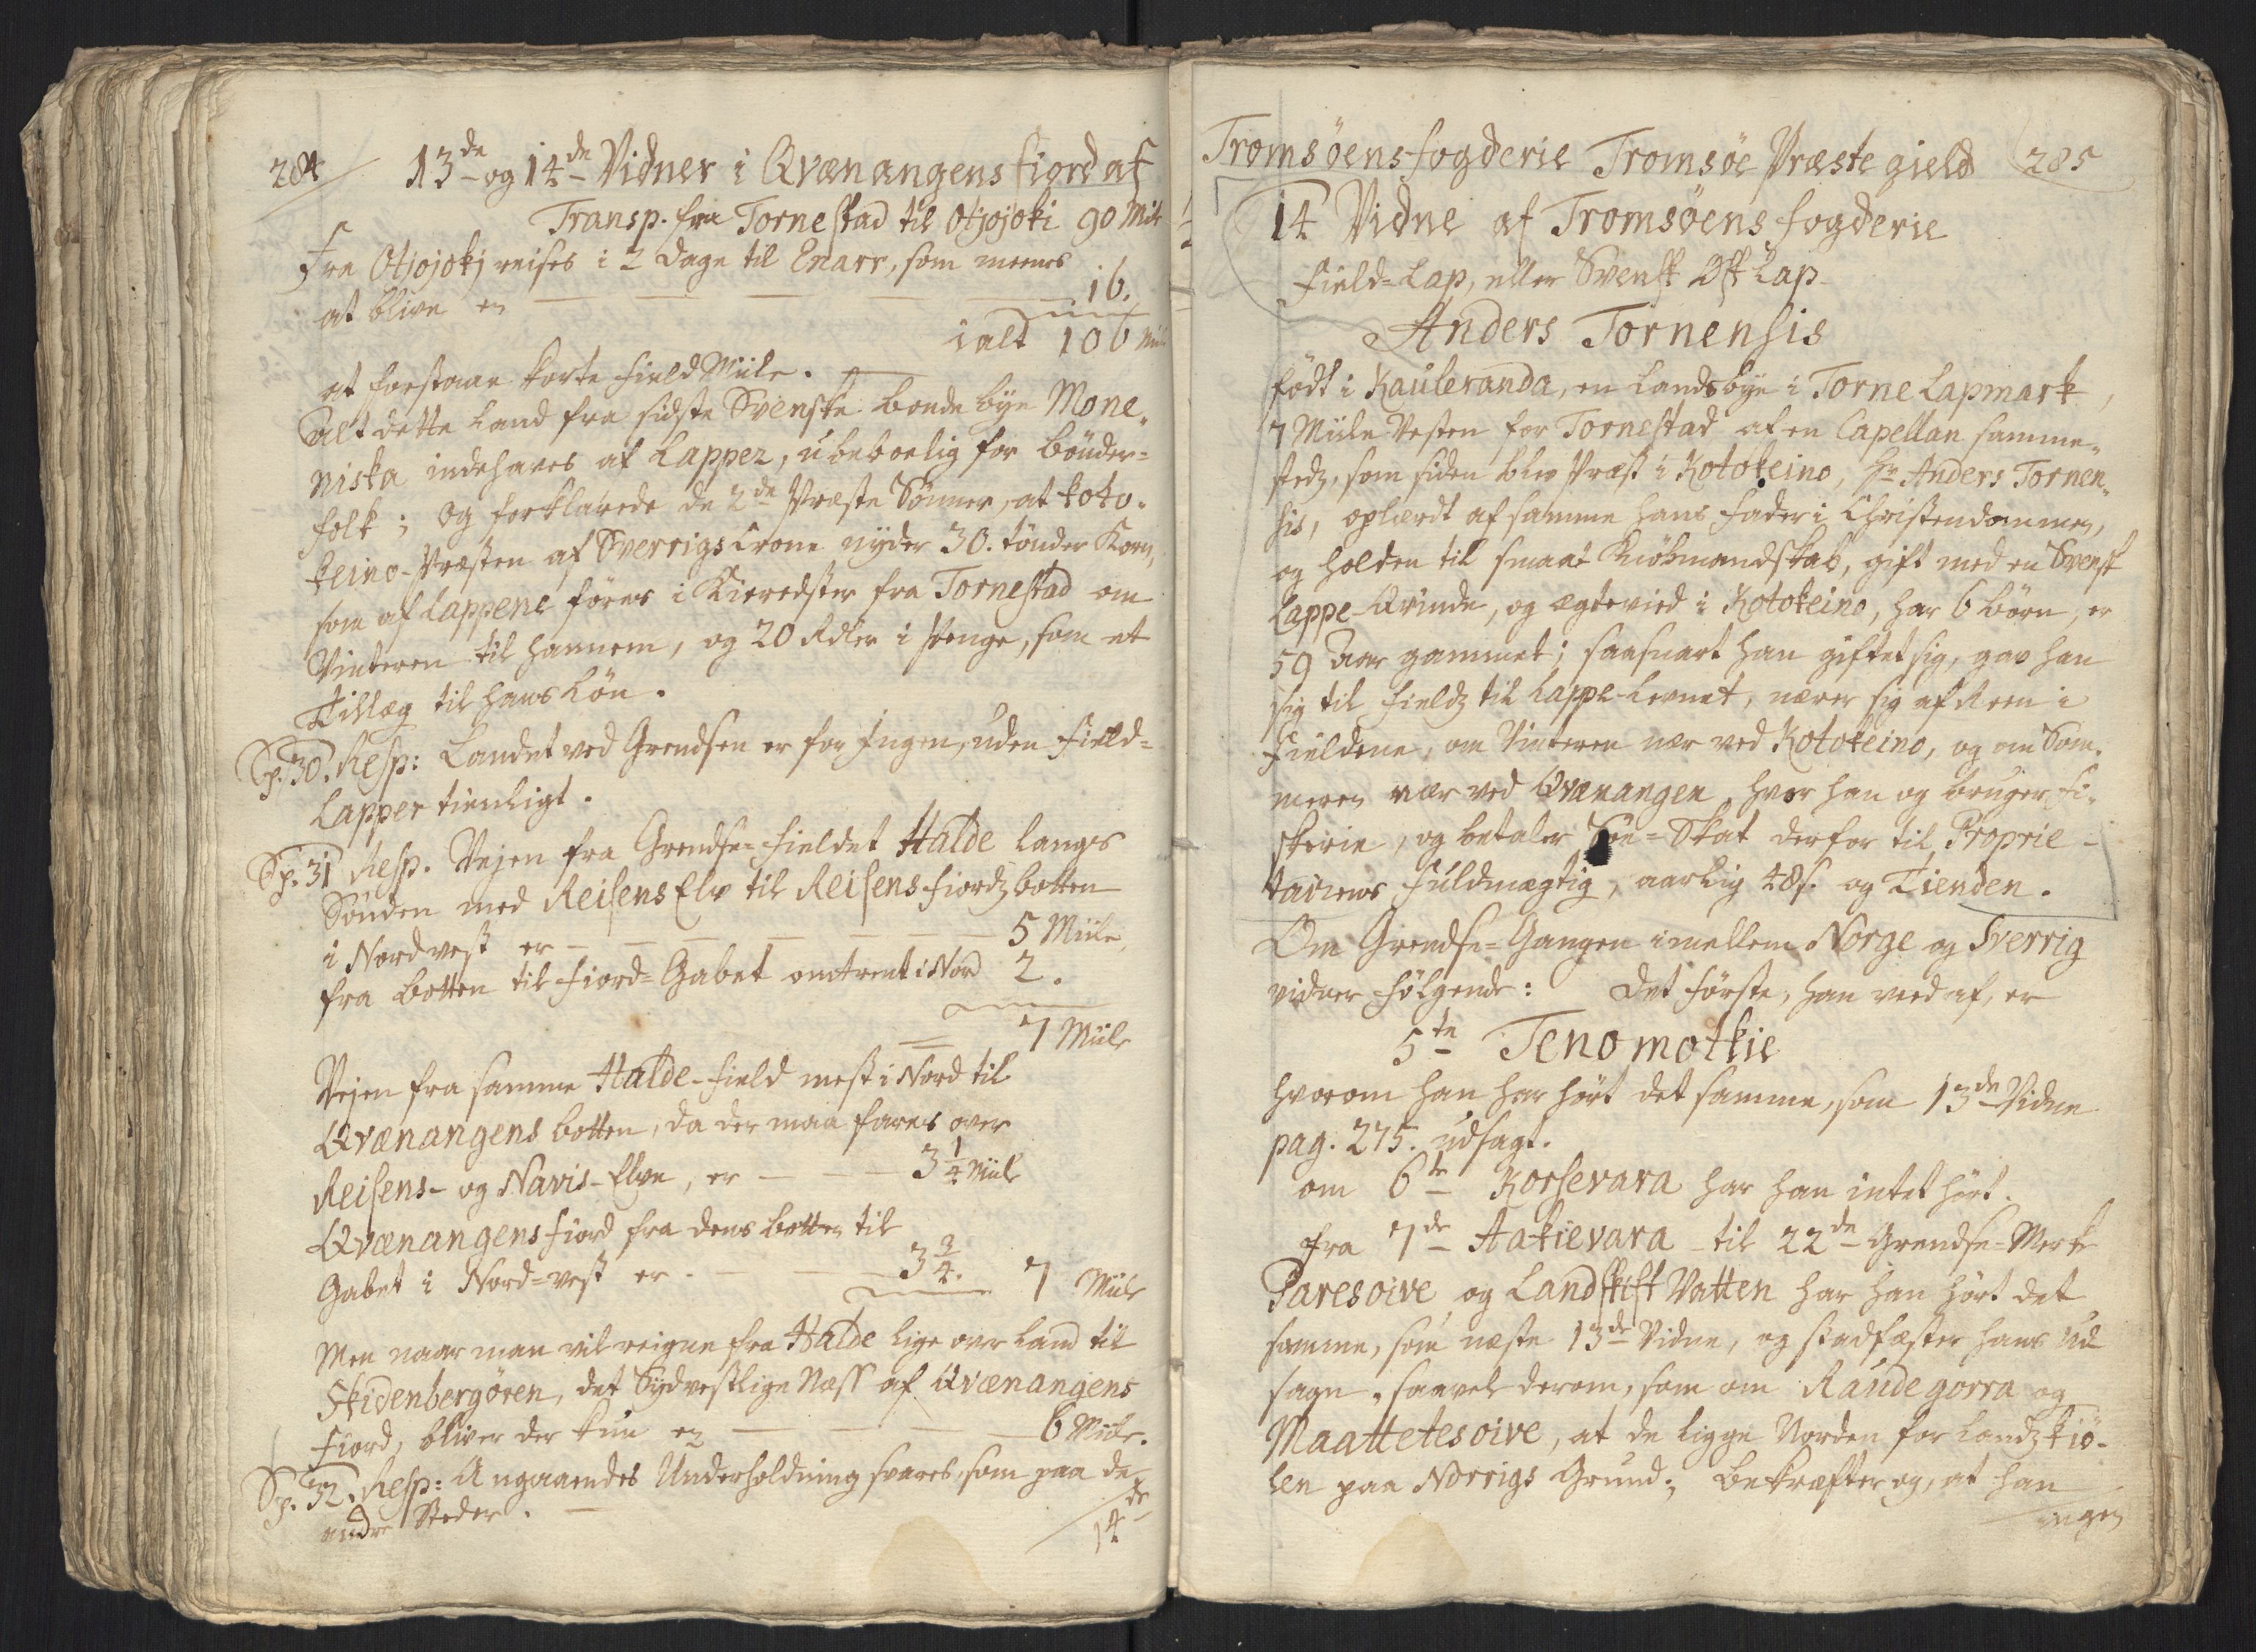 284
13de og 14de Vidner i Qvænangens fiord af
Transp. fra Tornestad til Otjojoki 90 Mile
Fra Otjojokj reises i 2 Dage til Enarr, som meenes
at blive en — — — — 16.
ialt 106 Mil
at forstaae korte Field Miile.
Alt dette Land fra sidste Svenske bonde bye Mone-
niska indehaves af Lapper, ubeboelig for bönder-
folk; og forklarede de 2de Præste Sönner, at Koto-
keino-Præsten af Sverrigs Crone nyder 30. tönder Korn,
som af Lappene föres i Kieredser fra Tornestad om
Vinteren til hannem, og 20 Rdler i Penge, som et
Tillæg til hans Lön.
Sp. 30. Resp: Landet ved Grendsen er for Ingen, uden Field-
Lapper tienligt.
Sp. 31 Resp. Vejen fra Grendse-Fieldet Halde langs
Sönden med Reisens Elv til Reisens fiordz botten
i Nordvest er — — — — 5 Miile,
fra botten til Fiord-Gabet omtrent i Nord 2.
7 Miile
Vejen fra samme Halde-Field mest i Nord til
Qvænangens botten, da der maa fares over
Reisens- og Navis-Elve, er — — 3 1/4 Miil
Qvænangens fiord fra dens botten til
Gabet i Nord-vest er — — 3 3/4. 7 Miile
Men naar man vil reigne fra Halde lige over land til
Skidenbergören, det Sydvestlige Næss af Qvænangens
Fiord, bliver der kun en — — — 6 Miile.
Sp. 32. Resp: Angaaendes Underholdning svares, som paa de
andre Steder. —
14de
Tromsöens fogderie Tromsöe Præste gield 285
14 Vidne af Tromsöens fogderie
Field-Lap, eller Svensk Öst Lap
Anders Tornensis
födt i Kauleranda, en Landsbye i Torne Lapmark,
7 Miile Vesten for Tornestad af en Capellan samme-
stedz, som siden blev Præst i Kotokeino, Hr Anders Tornen-
sis, oplærdt af samme hans fader i Christendommen,
og holden til smaat Kiöbmandskab, gift med en Svensk
Lappe-Qvinde, og ægtevied i Kotokeino, har 6 börn, er
59 Aar gammel; saasnart han giftet sig, gav han
sig til Fieldz til Lappe-Levnet, nærer sig af Reen i
Fieldene, om Vinteren nær ved Kotokeino, og om Som-
meren nær ved Qvænangen, hvor han og bruger Fi-
skerie, og betaler Söe-Skat derfor til Proprie-
tairens Fuldmægtig, aarlig 48 s. og Tienden.
Om Grendse-Gangen imellem Norge og Sverrig
vidner fölgende: Det förste, han veed af, er
5te Tenomotkie
hvorom han har hört det samme, som 13de Vidne
pag. 275. udsagt.
om 6te Korsevara har han intet hört.
fra 7de Aakievara til 22de Grendse-Merke
Paresoive og Landskift Vatten har han hört det
samme, som næste 13de Vidne, og stadfæster hans Ud
sagn, saavel derom, som om Raudegorra og
Maattetesoive, at de ligge Norden for Landz kiö-
len paa Norrigs Grund; bekræfter og, at han
ingen